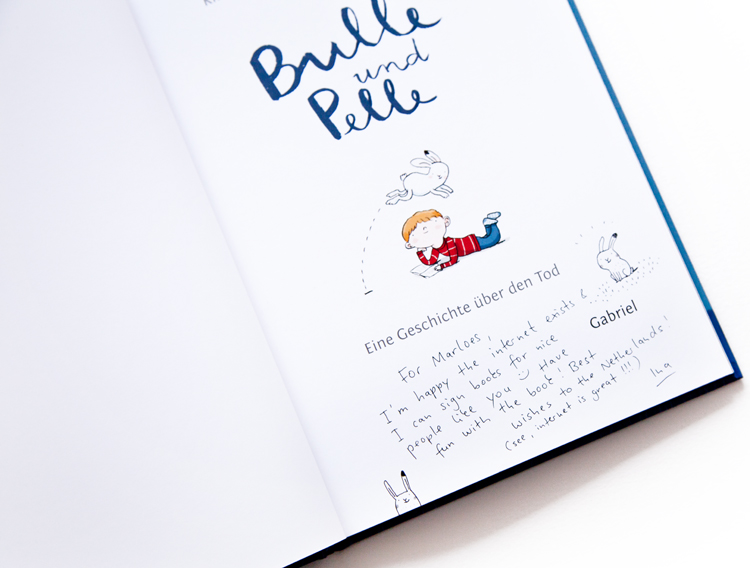 Bulle
und
Pelle
Eine Geschichte über den Tod
Gabriel
For Marloes,
I'm happy the internet exists &
I can sign books for nice
people like you :) Have
fun with the book! Best
wishes to the Netherlands!
(see, internet is great !!!)
Ina